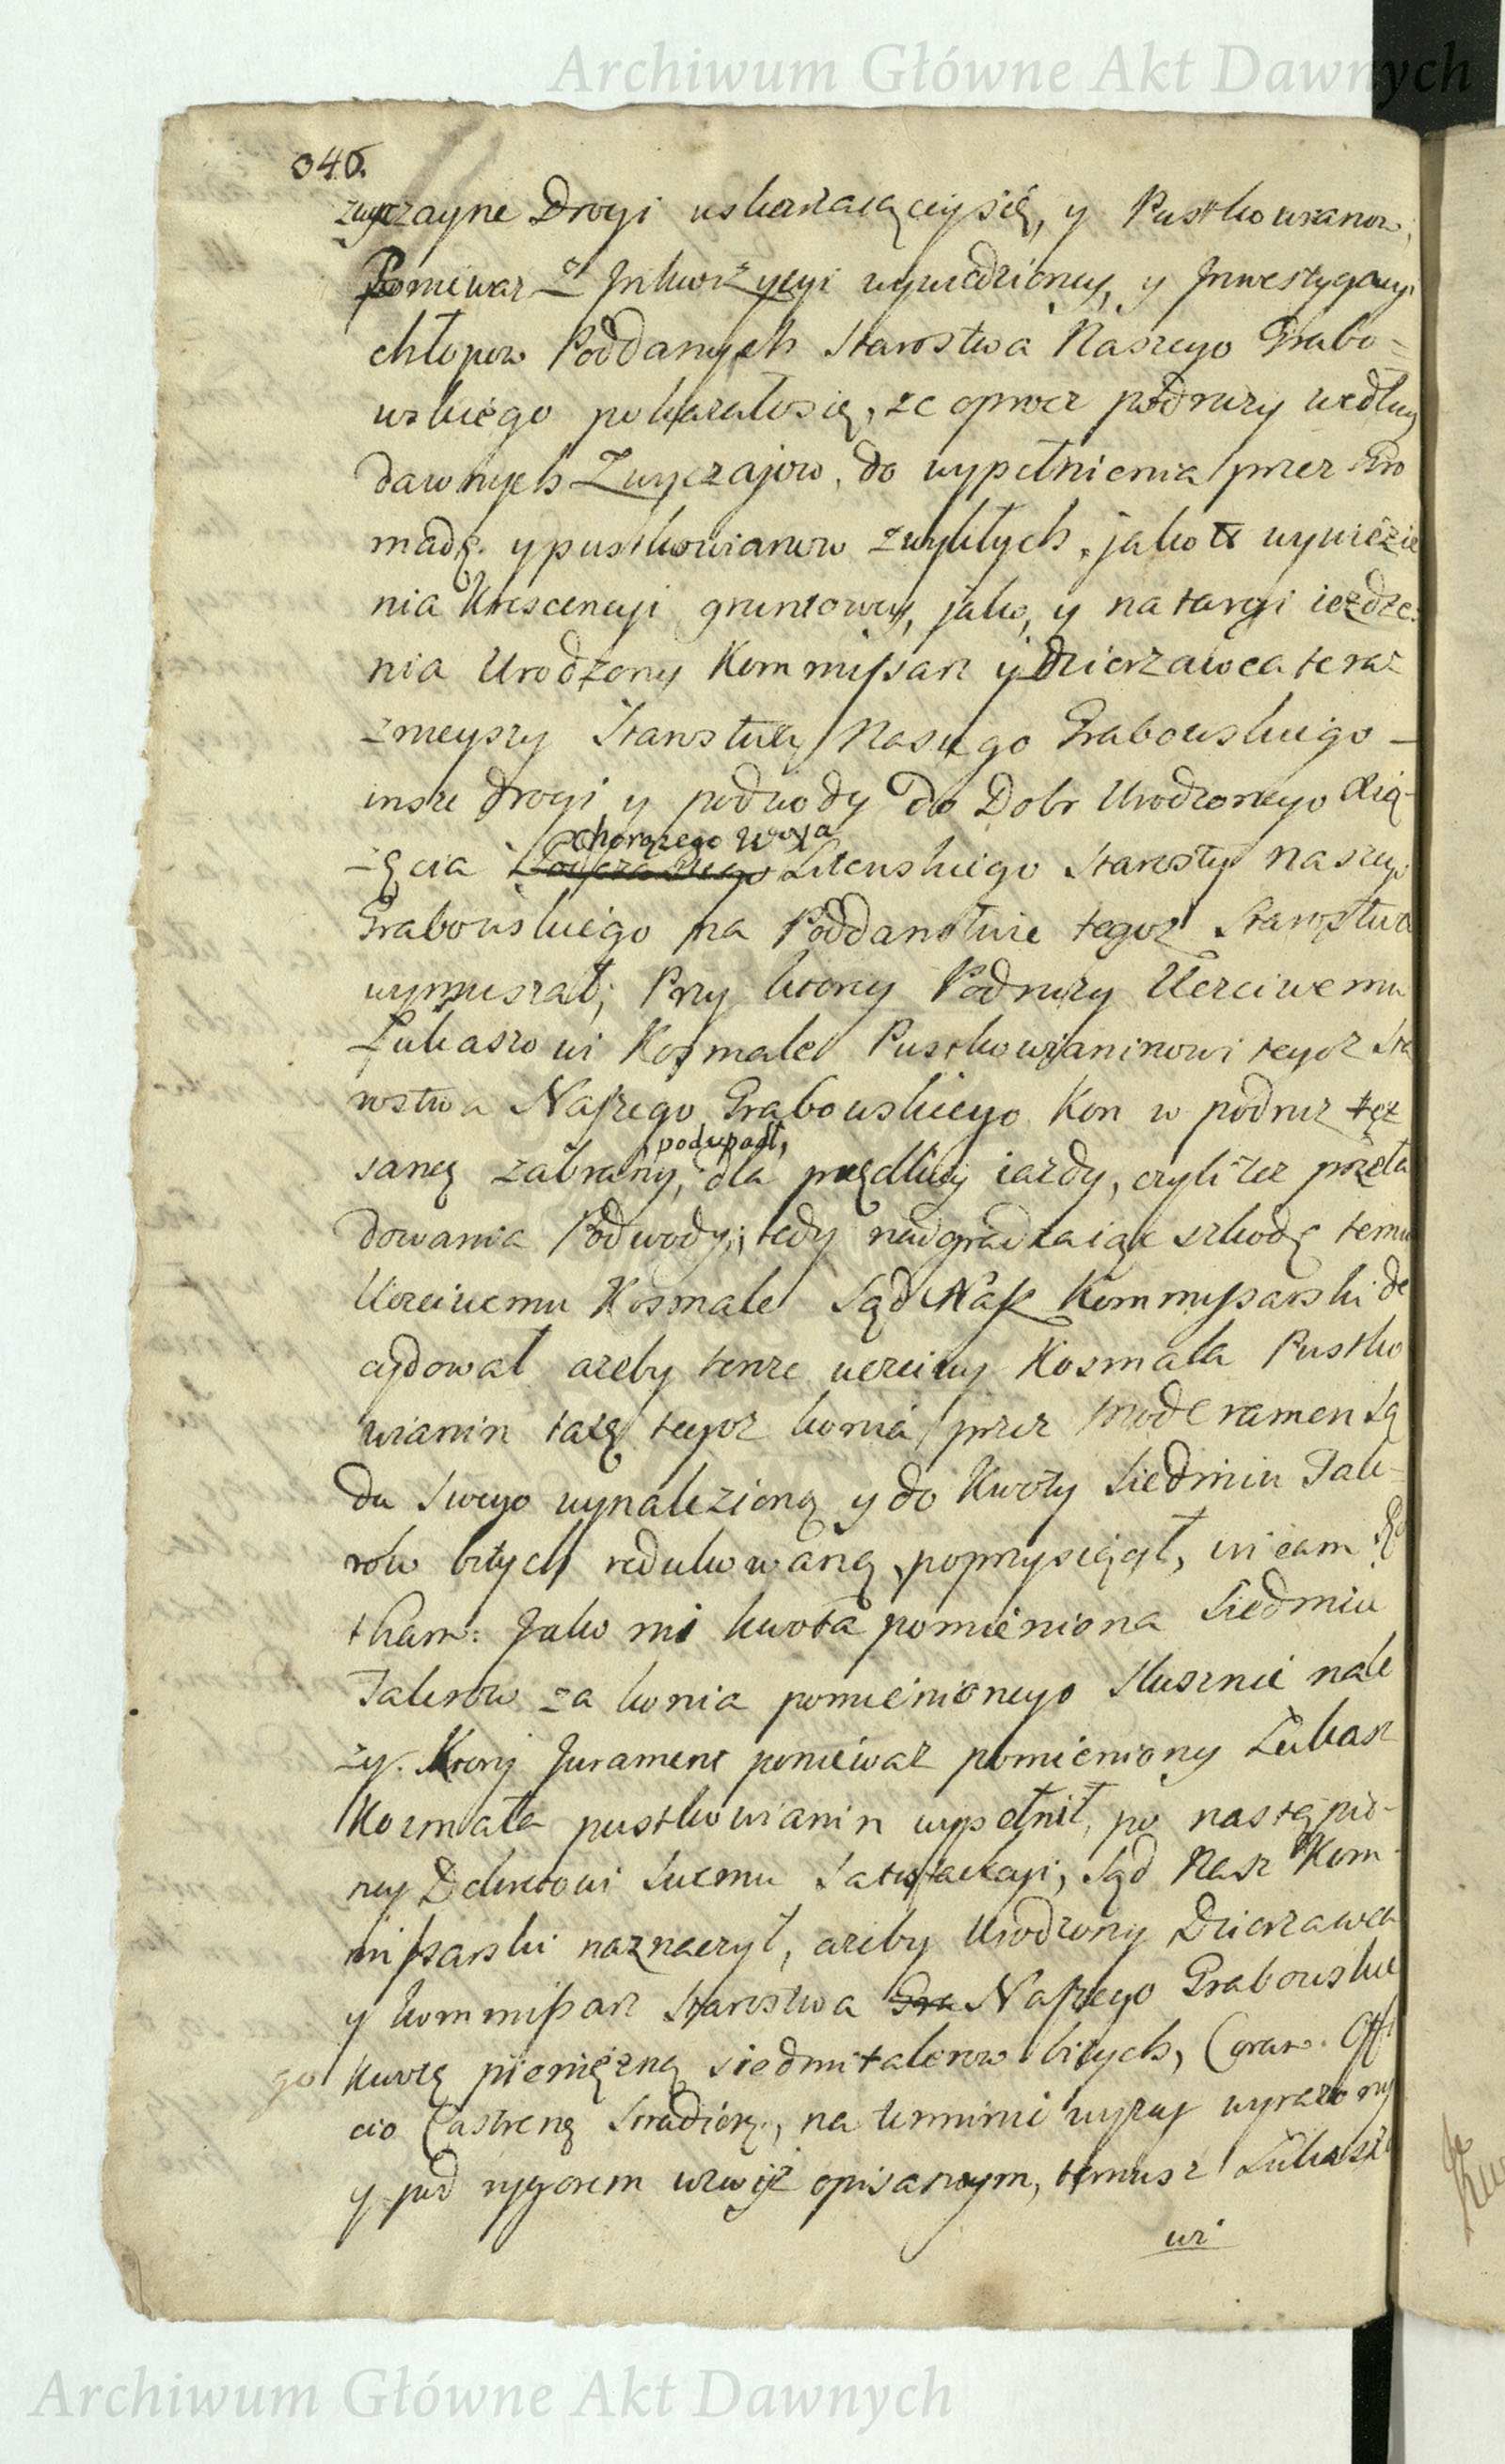 Archiwum Główne Akt Dawnych
346.
zwyczayne Drogi uskarzaiącey się, y Pustkowianow,
Poniewaz z Inkwizycyi wywiedzioney, y Inwestygacyi
chłopow Poddanych Starostwa Naszego Grabo=
wskiego pokazałosię, ze oprocz podruzy według
dawnych Zwyczajow, do wypełnienia przez Gro
madę y pustkowianow zwykłych, jako wywiezie
nia Krescencyi gruntowey, jako, y na targi iezdze.
nia Urodzony Kommissarz y Dzierzawca tera=
znieyszy Starostwa Naszego Grabowskiego –
insze drogi y podwody do Dobr Urodzonego Xią-
chorązego Woya
zęcia Litenskiego Starosty naszego
Grabowskiego na Poddanstwie tegoz Starostwa
wymuszał; Przy ktory Podruzy Uczciwemu
Łukaszowi Kosmale Pustkowianinowi tegoz Sta
rostwa Naszego Grabowskiego Kon w podruz tęz
podupadł,
samę zabrany, dla prędkiey iazdy, czyli tez przeła
dowania Podwody; tedy nadgradzaiąc szkodę temu
Uczciwemu Kosmale Sąd Nasz Kommissarski de
cydował azeby tenze uczciwy Kosmala Pustko
wianin taxę tegoz konia przez moderamen Są
du Swego wynalezioną y do Kwoty Siedmiu Tale=
row bitych redukowaną, poprzysiągł, in eam Ro
tham: Jako mi kwota pomieniona Siedmiu
Talerow za konia pomienionego Słusznie nale
zy. Ktory Jurament poniewaz pomieniony Łukasz
Kozmala pustkowianin wypełnił, po nastąpio-
ney Dekretowi Swemu Satysfakcyi, Sąd Nasz Kom-
missarski naznaczył, azeby Urodzony Dzierzawca
y kommissarz Starostwa Gra Naszego Grabowskie
go kwotę pieniężną siedmi talerow bitych, Coram Offi
cio Castren Siradien, na terminie wyzey wyrazony
y pod rygorem wzwyz opisanym, temusz Łukaszo
wi
Archiwum Główne Akt Dawnych